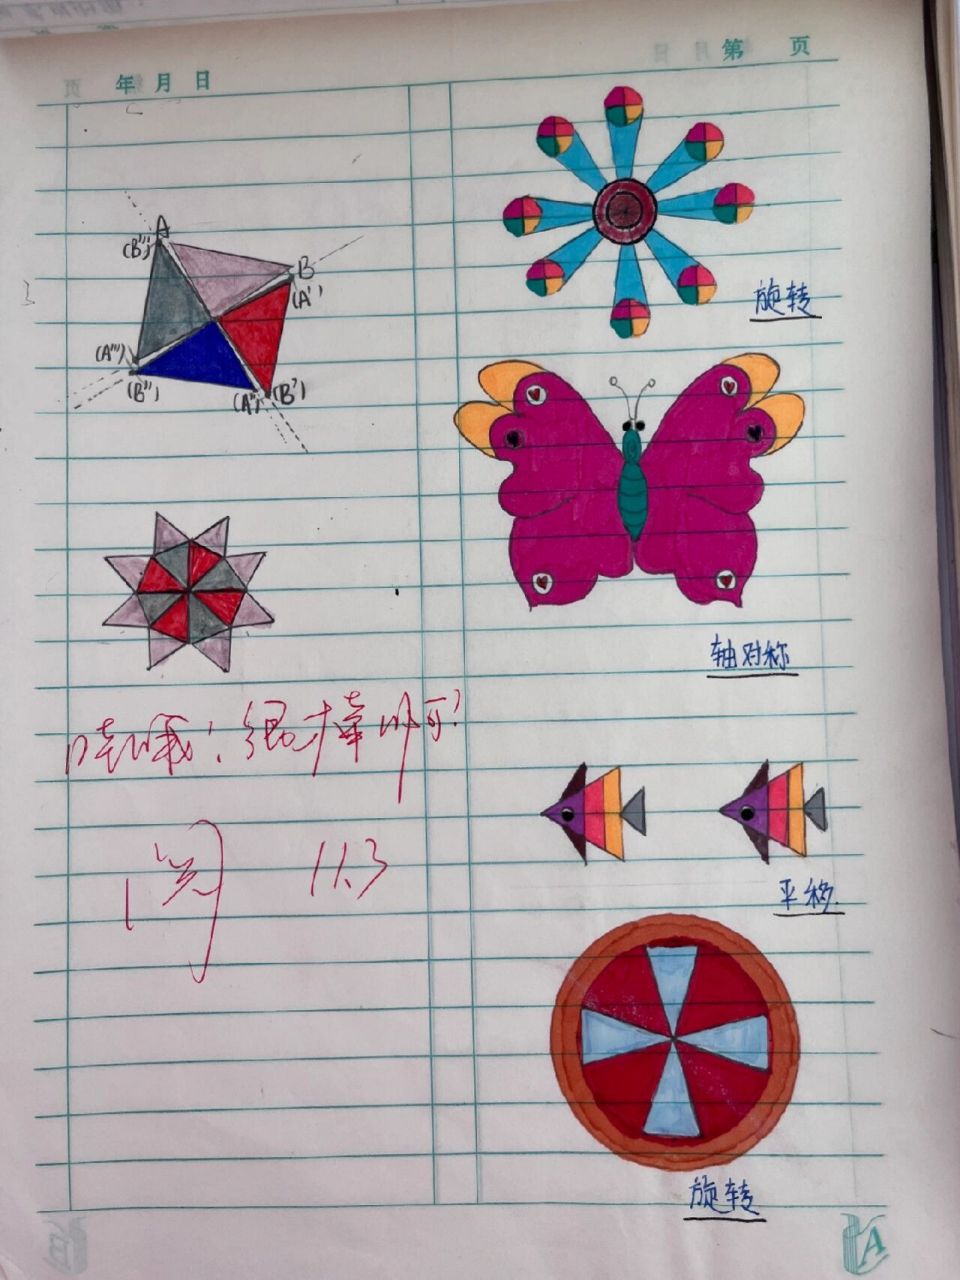 年 月 日
第 页
A
(B''')
B
(A')
(A''')
(B'')
(A'')
(B')
旋转
轴对称
哇哦！很棒哟！
平移
阅 11.3
旋转
B
A